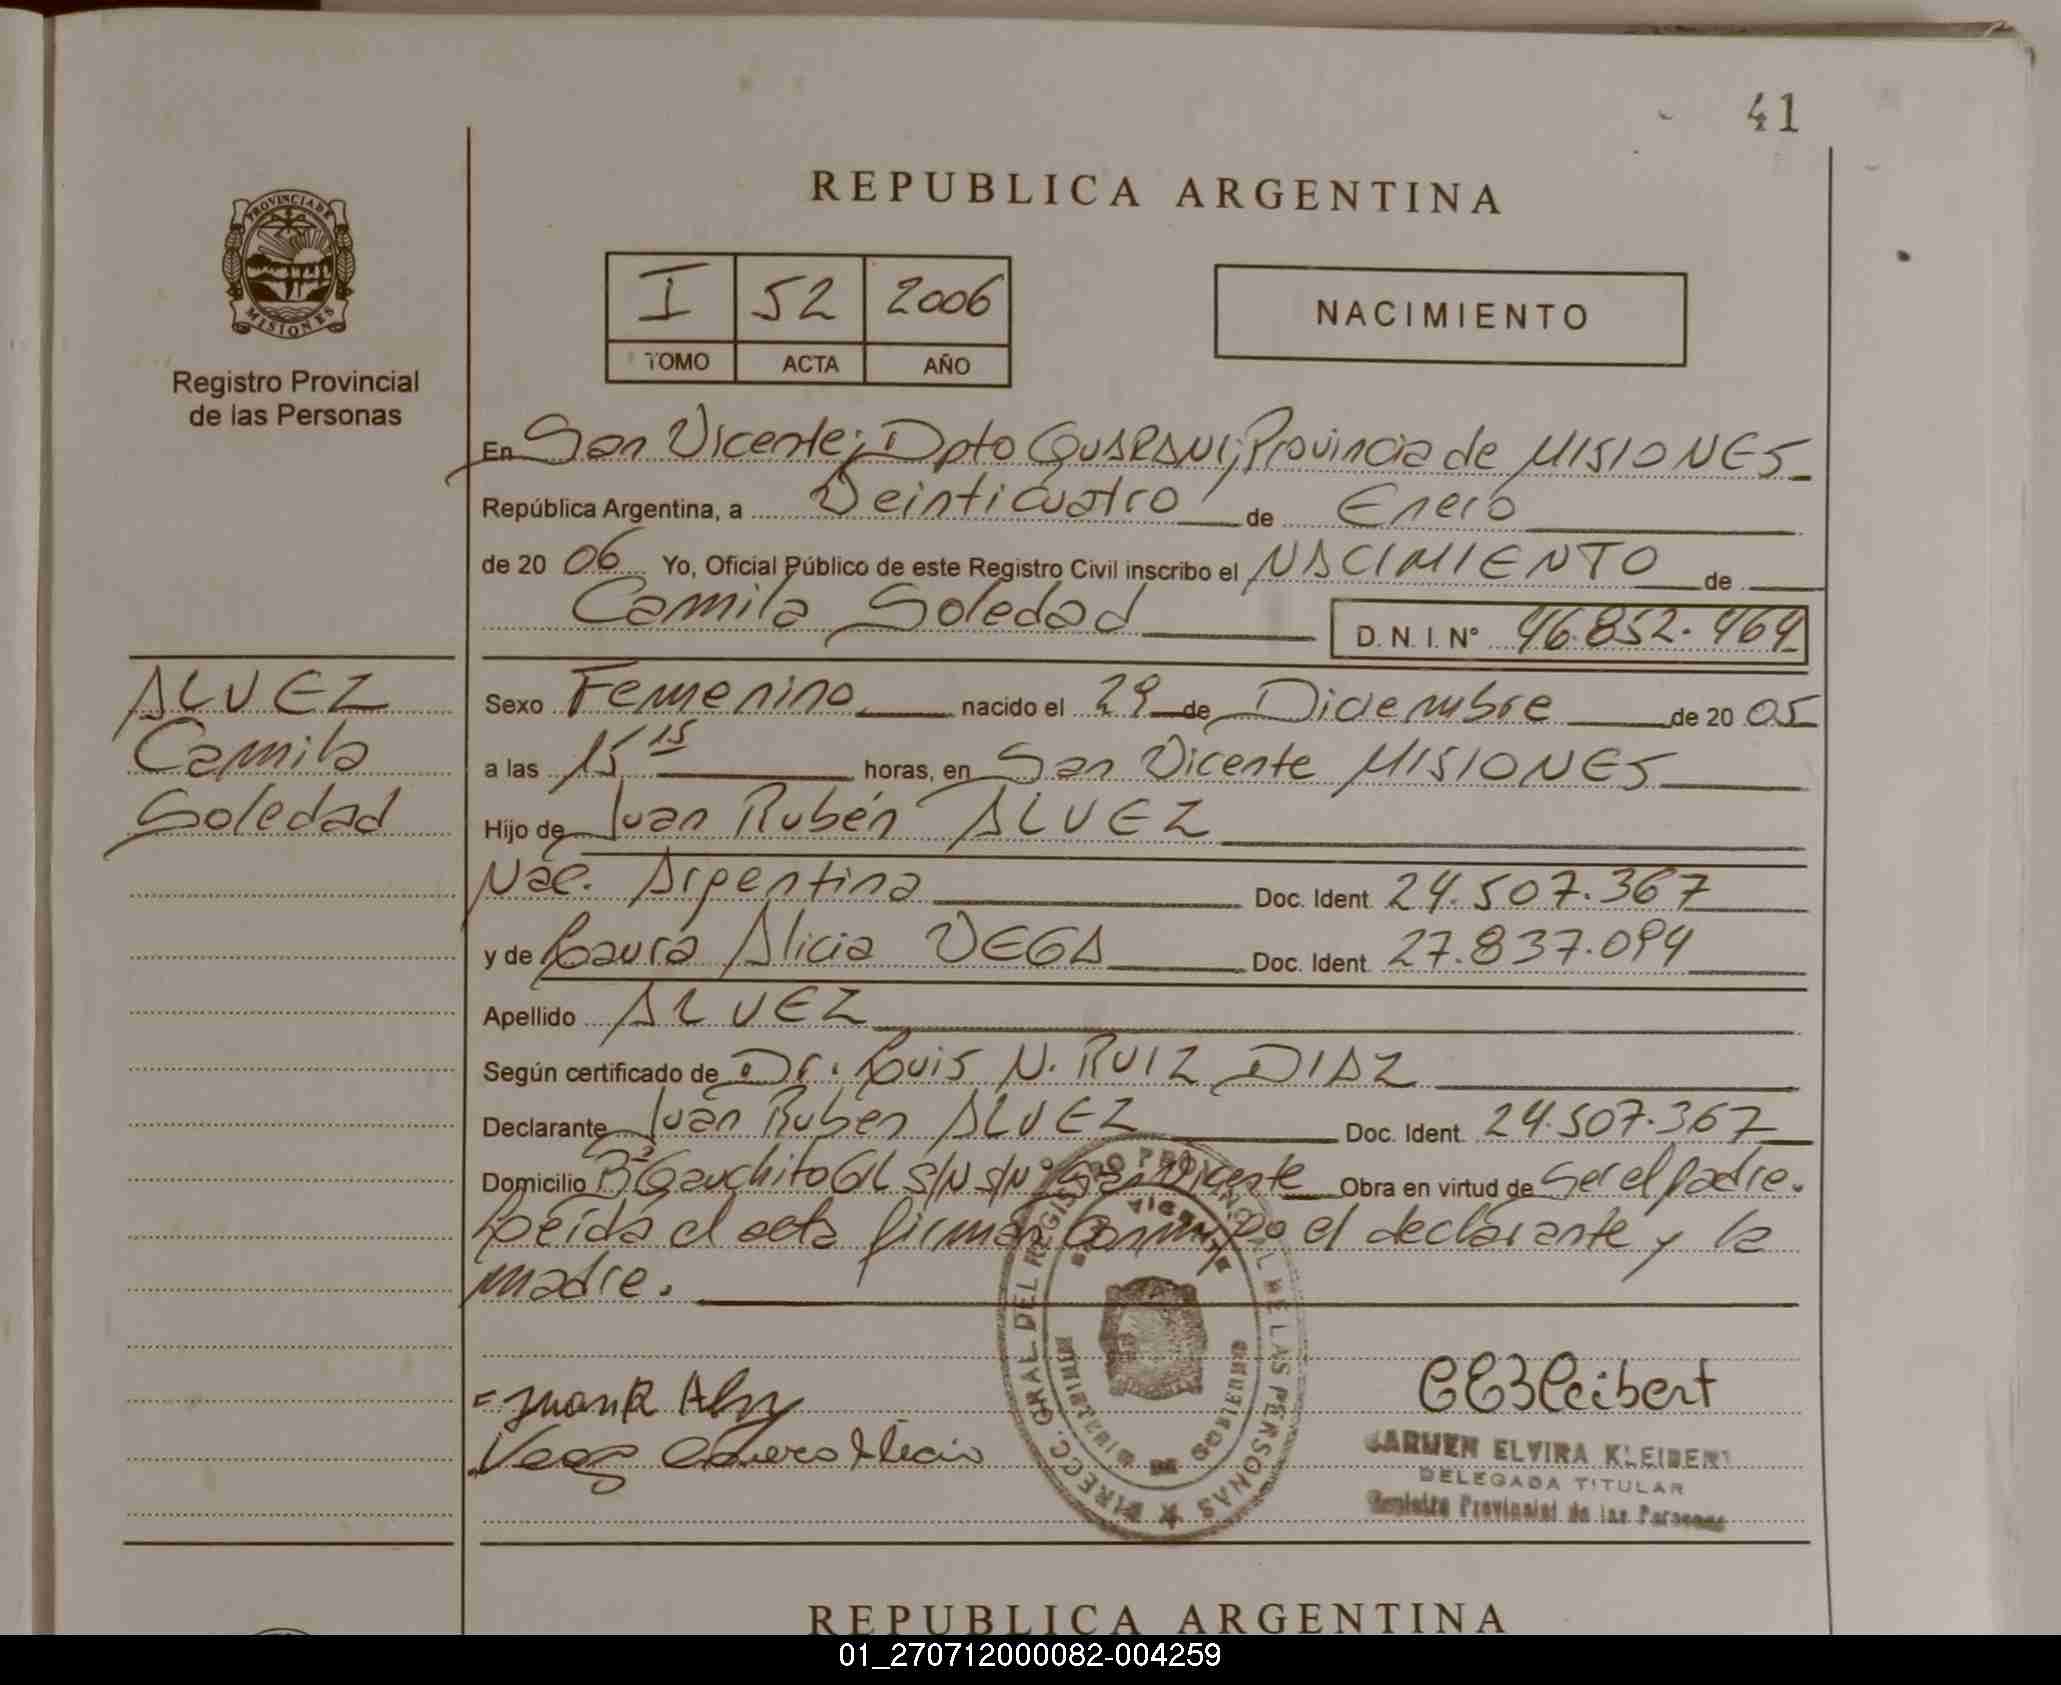 41
REPUBLICA ARGENTINA
PROVINCIA DE
MISIONES
Registro Provincial
de las Personas
I 52 2006
TOMO ACTA AÑO
NACIMIENTO
En San Vicente; Dpto GUARANI; Provincia de MISIONES
República Argentina, a Veinticuatro de Enero
de 20 06 Yo, Oficial Público de este Registro Civil inscribo el NACIMIENTO de
Camila Soledad D. N. I. N° 46.852.464
ALVEZ
Camila
Soledad
Sexo Femenino nacido el 29 de Diciembre de 20 05
a las 15 15 horas, en San Vicente MISIONES
Hijo de Juan Rubén ALVEZ
Nac. Argentina Doc. Ident. 24.507.367
y de Laura Alicia VEGA Doc. Ident. 27.837.094
Apellido ALVEZ
Según certificado de Dr. Luis N. RUIZ DIAZ
Declarante Juan Rubén ALVEZ Doc. Ident. 24.507.367
Domicilio Bº Gauchito Gil S/N S/Nº San Vicente Obra en virtud de Ser el padre.
Leída el acta firman conmigo el declarante y la
madre.
DIRECC. GRAL DEL REGISTRO PROVINCIAL DE LAS PERSONAS
VICENTE
= Juan R Alvez
Vega Laura Alicia
CEKleibert
CARMEN ELVIRA KLEIBERT
DELEGADA TITULAR
Registro Provincial de las Personas
REPUBLICA ARGENTINA
01_270712000082-004259